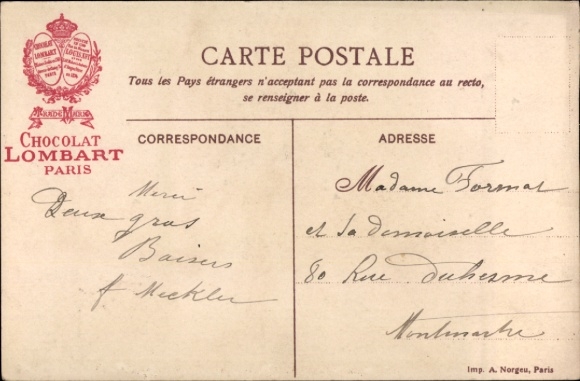 CHOCOLAT
LOMBART
PARIS
LOUIS XVI
TRADE MARK
CHOCOLAT
LOMBART
PARIS
CARTE POSTALE
Tous les Pays étrangers n'acceptant pas la correspondance au recto,
se renseigner à la poste.
CORRESPONDANCE
Merci
Deux gros
Baisers
f Meckler
ADRESSE
Madame Format
et sa demoiselle
80 Rue duhesme
Montmartre
Imp. A. Norgeu, Paris